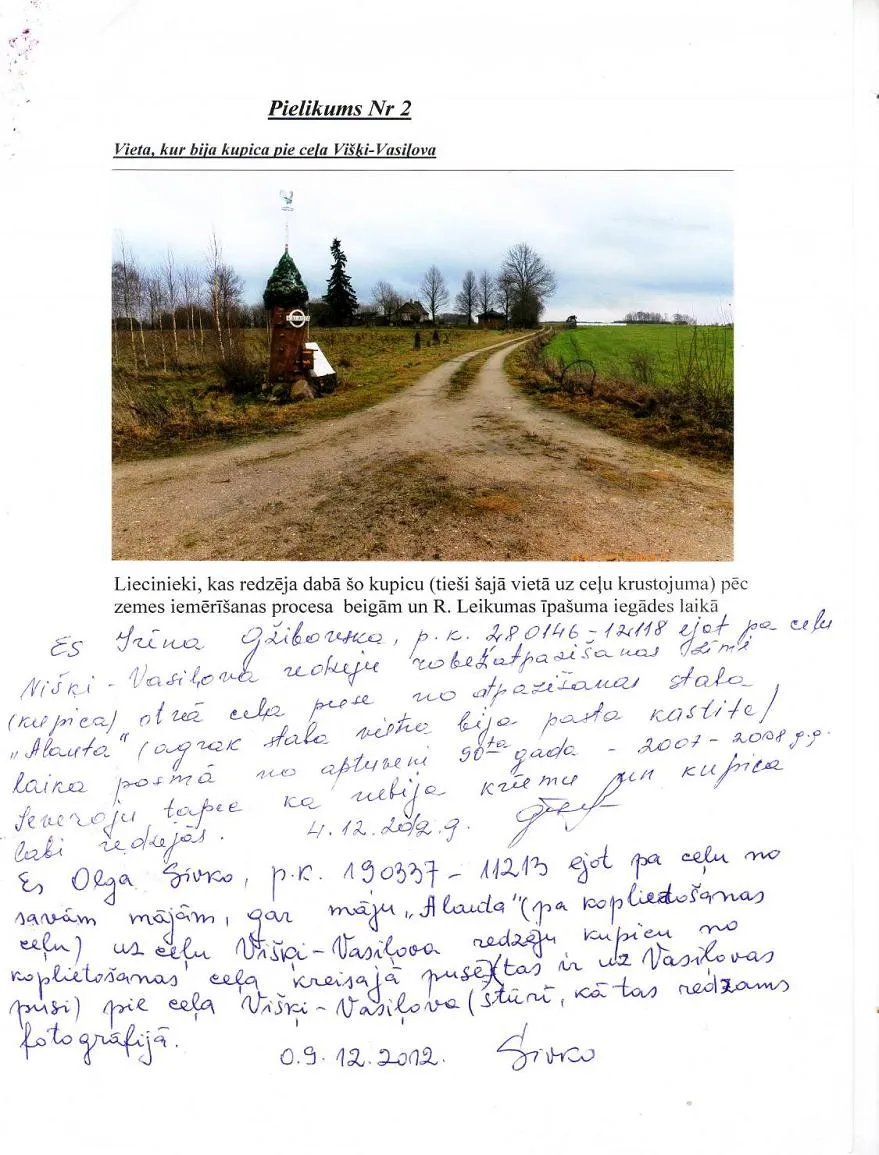 Pielikums Nr 2
Vieta, kur bija kupica pie ceļa Višķi-Vasiļova
Liecinieki, kas redzēja dabā šo kupicu (tieši šajā vietā uz ceļu krustojuma) pēc
zemes iemērīšanas procesa beigām un R. Leikumas īpašuma iegādes laikā
Es Irēna Gžibovska, p.k. 280146-12118 ejot pa ceļu
Višķi-Vasiļova redzēju robežatpazīšanas zīmi
(kupica) otrā ceļa puse no atpazīšanas staba
„Alauta" (agrak staba vietā bija pasta kastīte)
laika posmā no aptuveni 90ta gada - 2007-2008 g.g.
ievēroju tapēc ka nebija krūmu un kupica
labi redzējās. 4.12.2012 g.
Es Olga Sivko, p.k. 190337-11213 ejot pa ceļu no
savām mājām, gar māju „Alauta" (pa koplietošanas
ceļu) uz ceļu Višķi-Vasiļova redzēju kupicu no
koplietošanas ceļa kreisajā pusē (tas ir uz Vasiļovas
pusi) pie ceļa Višķi-Vasiļova (stūrī, kā tas redzams
fotogrāfijā.
09.12.2012. Sivko